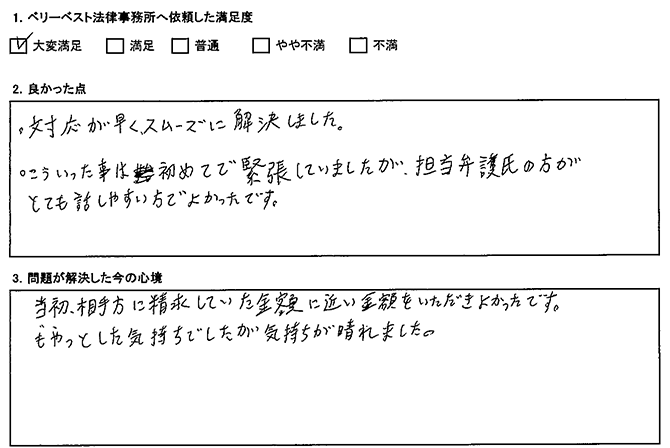 1. ベリーベスト法律事務所へ依頼した満足度
☑ 大変満足 □ 満足 □ 普通 □ やや不満 □ 不満
2. 良かった点
。対応が早く、スムーズに解決しました。
。こういった事は初めてで緊張していましたが、担当弁護氏の方が
とても話しやすい方でよかったです。
3. 問題が解決した今の心境
当初、相手方に精求していた金額に近い金額をいただきよかったです。
もやっとした気持ちでしたが気持ちが晴れました。